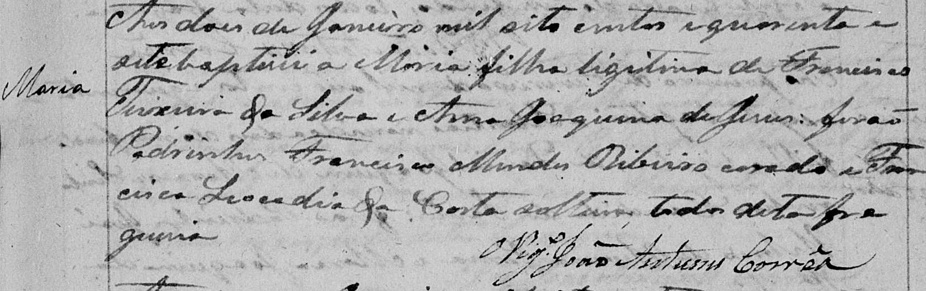 Aos dous de Janeiro mil oito centos e quarenta e
oito baptisei a Maria filha ligitima de Francisco
Maria
Teixeira da Silva e Anna Joaquina de Jesus: forão
Padrinhos Francisco Mendes Ribeiro casado e Fran
cisca Leocadia da Costa solteira, todos desta fre
guesia
O Vigº. João Antunes Corrêa